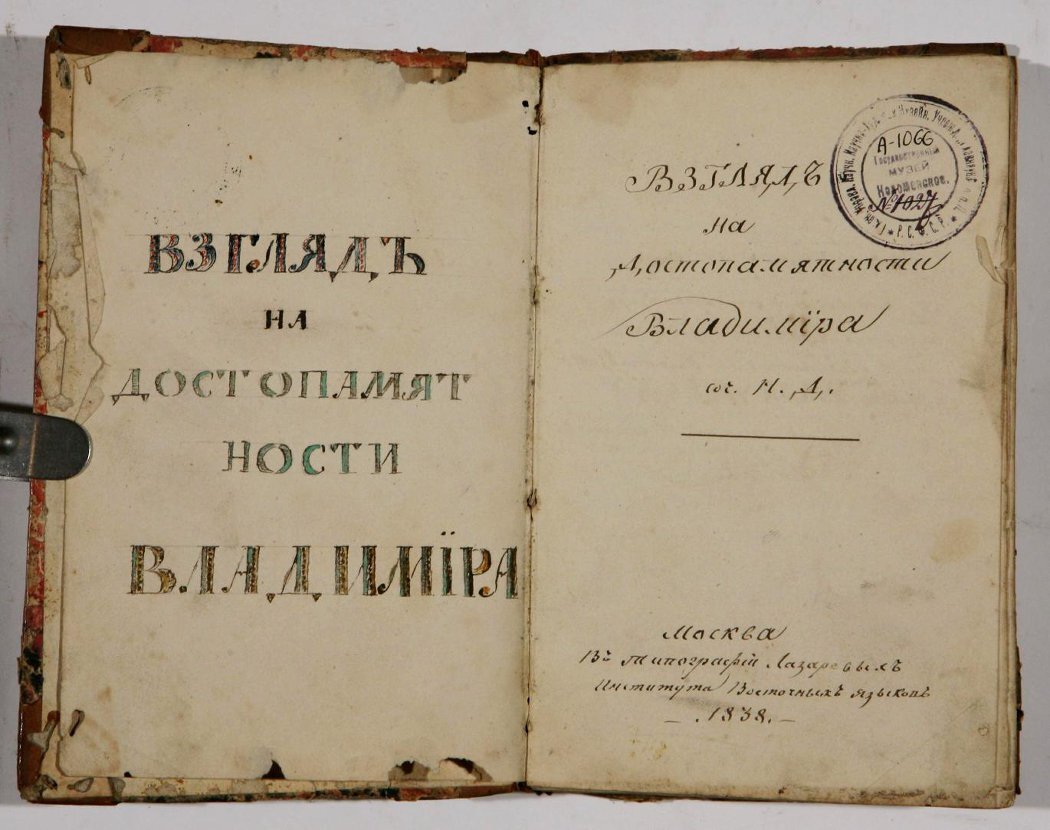 ВЗГЛЯДЪ
НА
ДОСТОПАМЯТ
НОСТИ
ВЛАДИМЇРА
ВЗГЛЯДЪ
на
Достопамятности
Владимїра
соч. Н. Д.
Москва
Въ типографїи Лазаревыхъ
Института Восточныхъ языковъ
– 1838. –
А-1066
Государственный
МУЗЕЙ
Коломенское.
№ 1027
Р.С.Ф.С.Р.